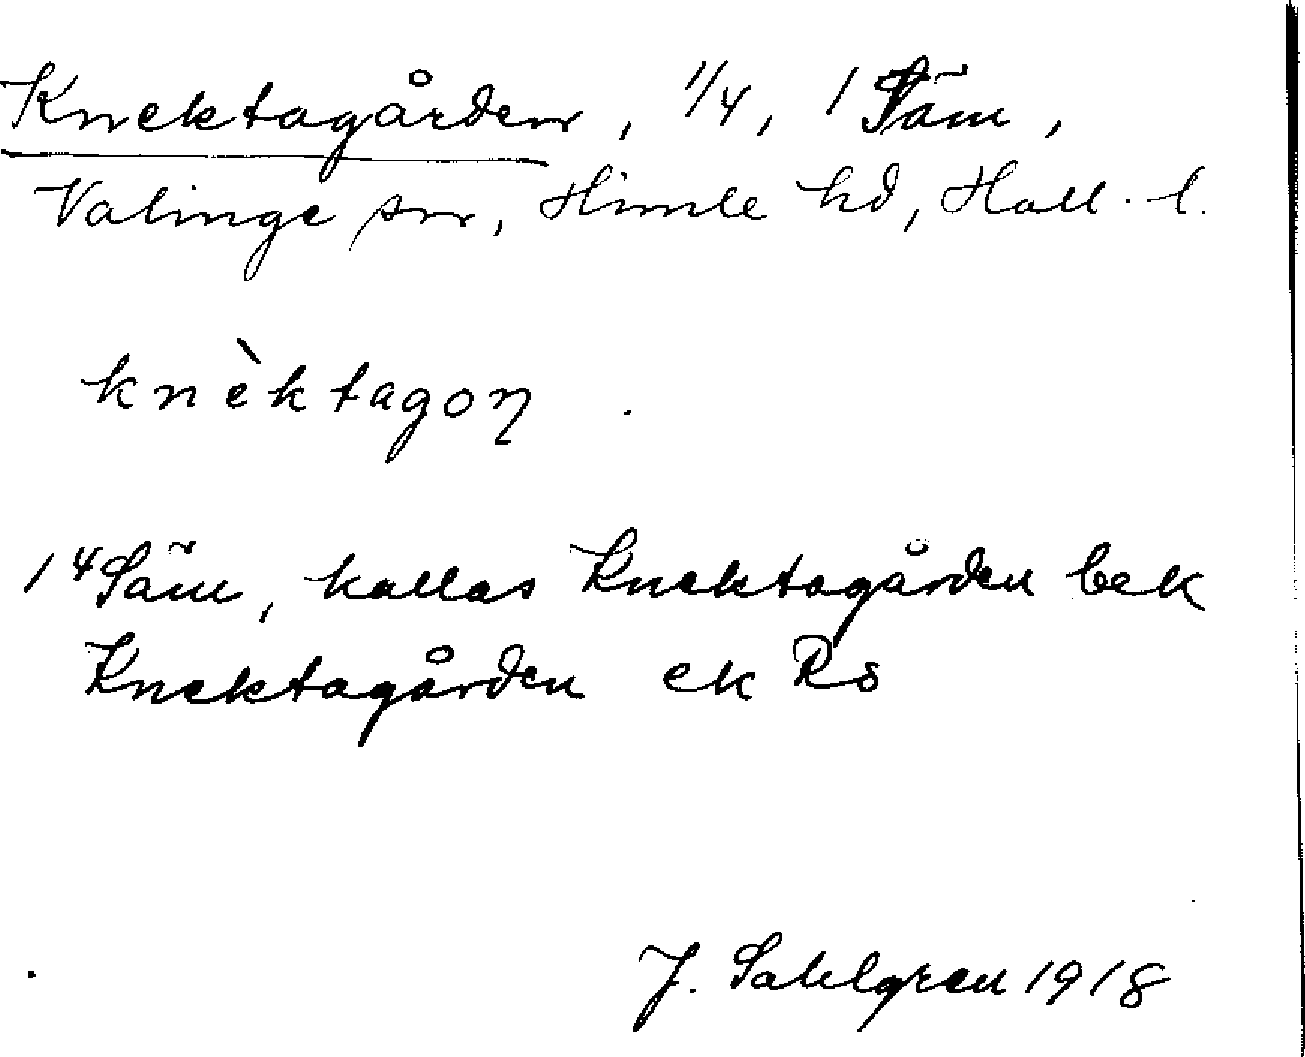 Knektagården, 1/4, 1 Säm,
Valinge sn, Himle hd, Hall. l.
knèktagoɳ.
1⁴ Säm, kallas Knektagården bek
Knektagården ek Rs
J. Sahlgren 1918